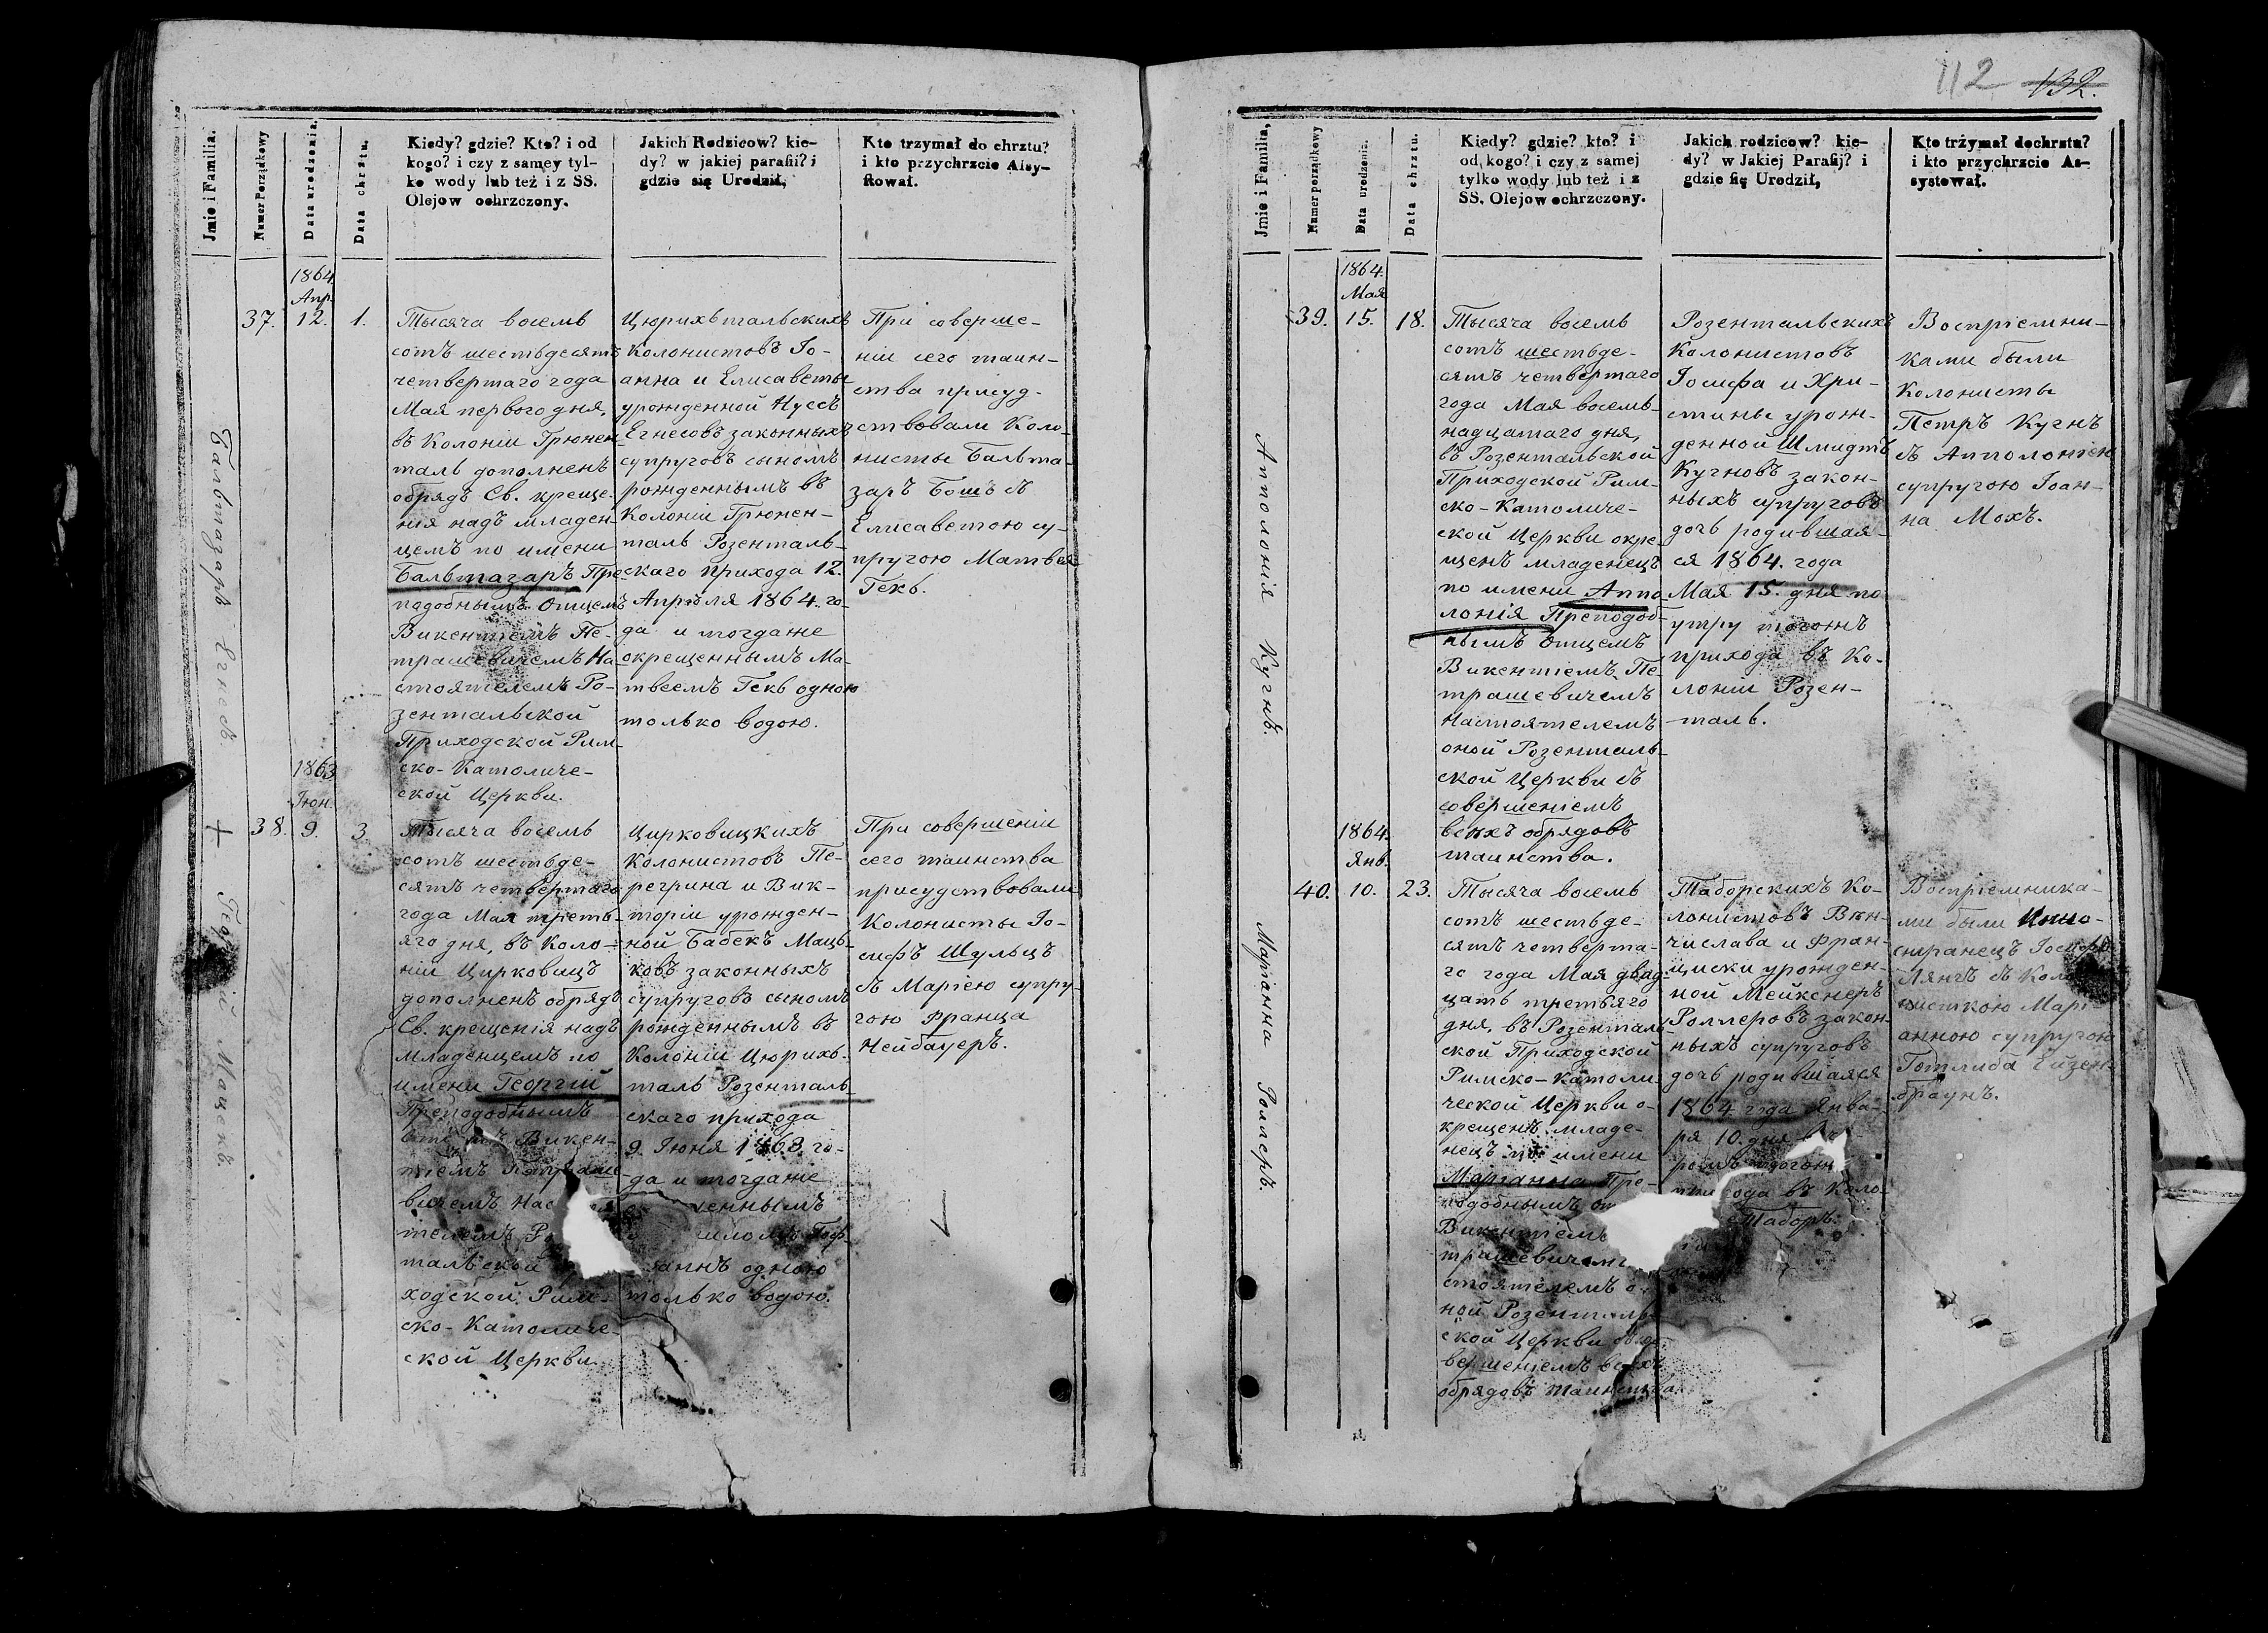 112 132.
Jmie i Familia.
Numer Porządkowy
Data urodzenia.
Data chrztu.
Kiedy? gdzie? Kto? i od
kogo? i czy z samey tyl-
ko wody lub też i z SS.
Olejow ochrzczony.
Jakich Rodzicow? kie-
dy? w jakiej parafii? i
gdzie się Urodził,
Kto trzymał do chrztu?
i kto przychrzcie Assy-
stował.
Бальтазаръ Егнесъ
1864.
Апр.
37. 12. 1.
Тысяча восемь
сотъ шестьдесятъ
четвертаго года
Мая перваго дня,
въ Колоніи Грюнен-
таль дополненъ
обрядъ Св. креще-
нія надъ младен-
цемъ по имени
Бальтазаръ Пре-
подобнымъ Отцемъ
Викентіемъ Пе-
трашевичемъ На-
стоятелемъ Ро-
зентальской
Приходской Рим-
ско-Католиче-
ской Церкви.
Цюрихътальскихъ
Колонистовъ Іо-
анна и Елисаветы
урожденной Нуссъ
Егнесовъ законныхъ
супруговъ сыномъ
рожденнымъ въ
Колоніи Грюнен-
таль Розенталь-
скаго прихода 12.
Апрѣля 1864. го-
да и тогдаже
окрещеннымъ Ма-
твеемъ Гекъ одною
только водою.
При соверше-
ніи сего таин-
ства присуд-
ствовали Коло-
нисты Бальта-
заръ Бошъ съ
Елисаветою су-
пругою Матвея
Гекъ.
+ Георгій Мацекъ.
1863
Іюн.
38. 9. 3
Тысяча восемь
сотъ шестьде-
сятъ четвертаго
года Мая треть-
яго дня, въ Коло-
ніи Цирковицъ
дополненъ обрядъ
Св. крещенія надъ
младенцемъ по
имени Георгій
Преподобнымъ
Викен-
тіемъ Петраше
вичемъ Нас
телемъ Ро
тальской
ходской Рим-
ско-Католиче-
ской Церкви.
Цирковицкихъ
Колонистовъ Пе-
регрина и Вик-
торіи урожден-
ной Бабекъ Маць-
ковъ законныхъ
супруговъ сыномъ
рожденнымъ въ
Колоніи Цюрихъ-
таль Розенталь-
скаго прихода
9. Іюня 1863. го-
да и тогдаже
еннымъ
одною
только водою.
При совершеніи
сего таинства
присудствовали
Колонисты Іо-
сифъ Шульцъ
съ Маріею супру-
гою Франца
Нейбауеръ.
Jmie i Familia,
Numer porządkowy
Data urodzenia.
Data chrztu.
Kiedy? gdzie? kto? i
od kogo? i czy z samej
tylko wody lub też i z
SS. Olejow ochrzczony.
Jakich rodzicow? kie-
dy? w Jakiej Parafij? i
gdzie się Urodził,
Kto trżymał dochrztu?
i kto przychrzcie As-
systował.
Апполонія Кугнъ.
1864.
Мая
39. 15. 18.
Тысяча восемь
сотъ шестьде-
сятъ четвертаго
года Мая восемь-
надцатаго дня,
въ Розентальской
Приходской Рим-
ско-Католиче-
ской Церкви окре-
щенъ младенецъ
по имени Аппо-
лонія Преподоб-
нымъ Отцемъ
Викентіемъ Пе-
трашевичемъ
Настоятелемъ
оной Розенталь-
ской Церкви съ
совершеніемъ
всѣхъ обрядовъ
таинства.
Розентальскихъ
Колонистовъ
Іосифа и Хри-
стины урож-
денной Шмидтъ
Кугновъ закон-
ныхъ супруговъ
дочь родившая-
ся 1864. года
Мая 15. дня по
утру тогожъ
прихода въ Ко-
лоніи Розен-
таль.
Воспріемни-
ками были
Колонисты
Петръ Кугнъ
съ Апполоніею
супругою Іоан-
на Мохъ.
Маріанна Роллеръ.
1864.
Янв.
40. 10. 23.
Тысяча восемь
сотъ шестьде-
сятъ четверта-
го года Мая двад-
цать третьяго
дня, въ Розенталь-
ской Приходской
Римско-Католи-
ческой Церкви о-
крещенъ младе-
нецъ по имени
Маріанна Пре-
подобнымъ От
Викентіемъ
трашевичемъ
стоятелемъ о-
ной Розенталь-
ской Церкви съ со-
вершеніемъ всѣхъ
обрядовъ таинства.
Таборскихъ Ко-
лонистовъ Вен-
числава и Фран-
циски урожден-
ной Мейкснеръ
Роллеровъ закон-
ныхъ супруговъ
дочь родившаяся
1864 года Янва-
ря 10. дня
тогожъ
прихода въ Коло-
Таборъ.
Воспріемника-
ми были Инно-
странецъ
Лянгъ съ Коло-
нисткою Марі-
анною супругою
Готлиба Ейзен-
браунъ.